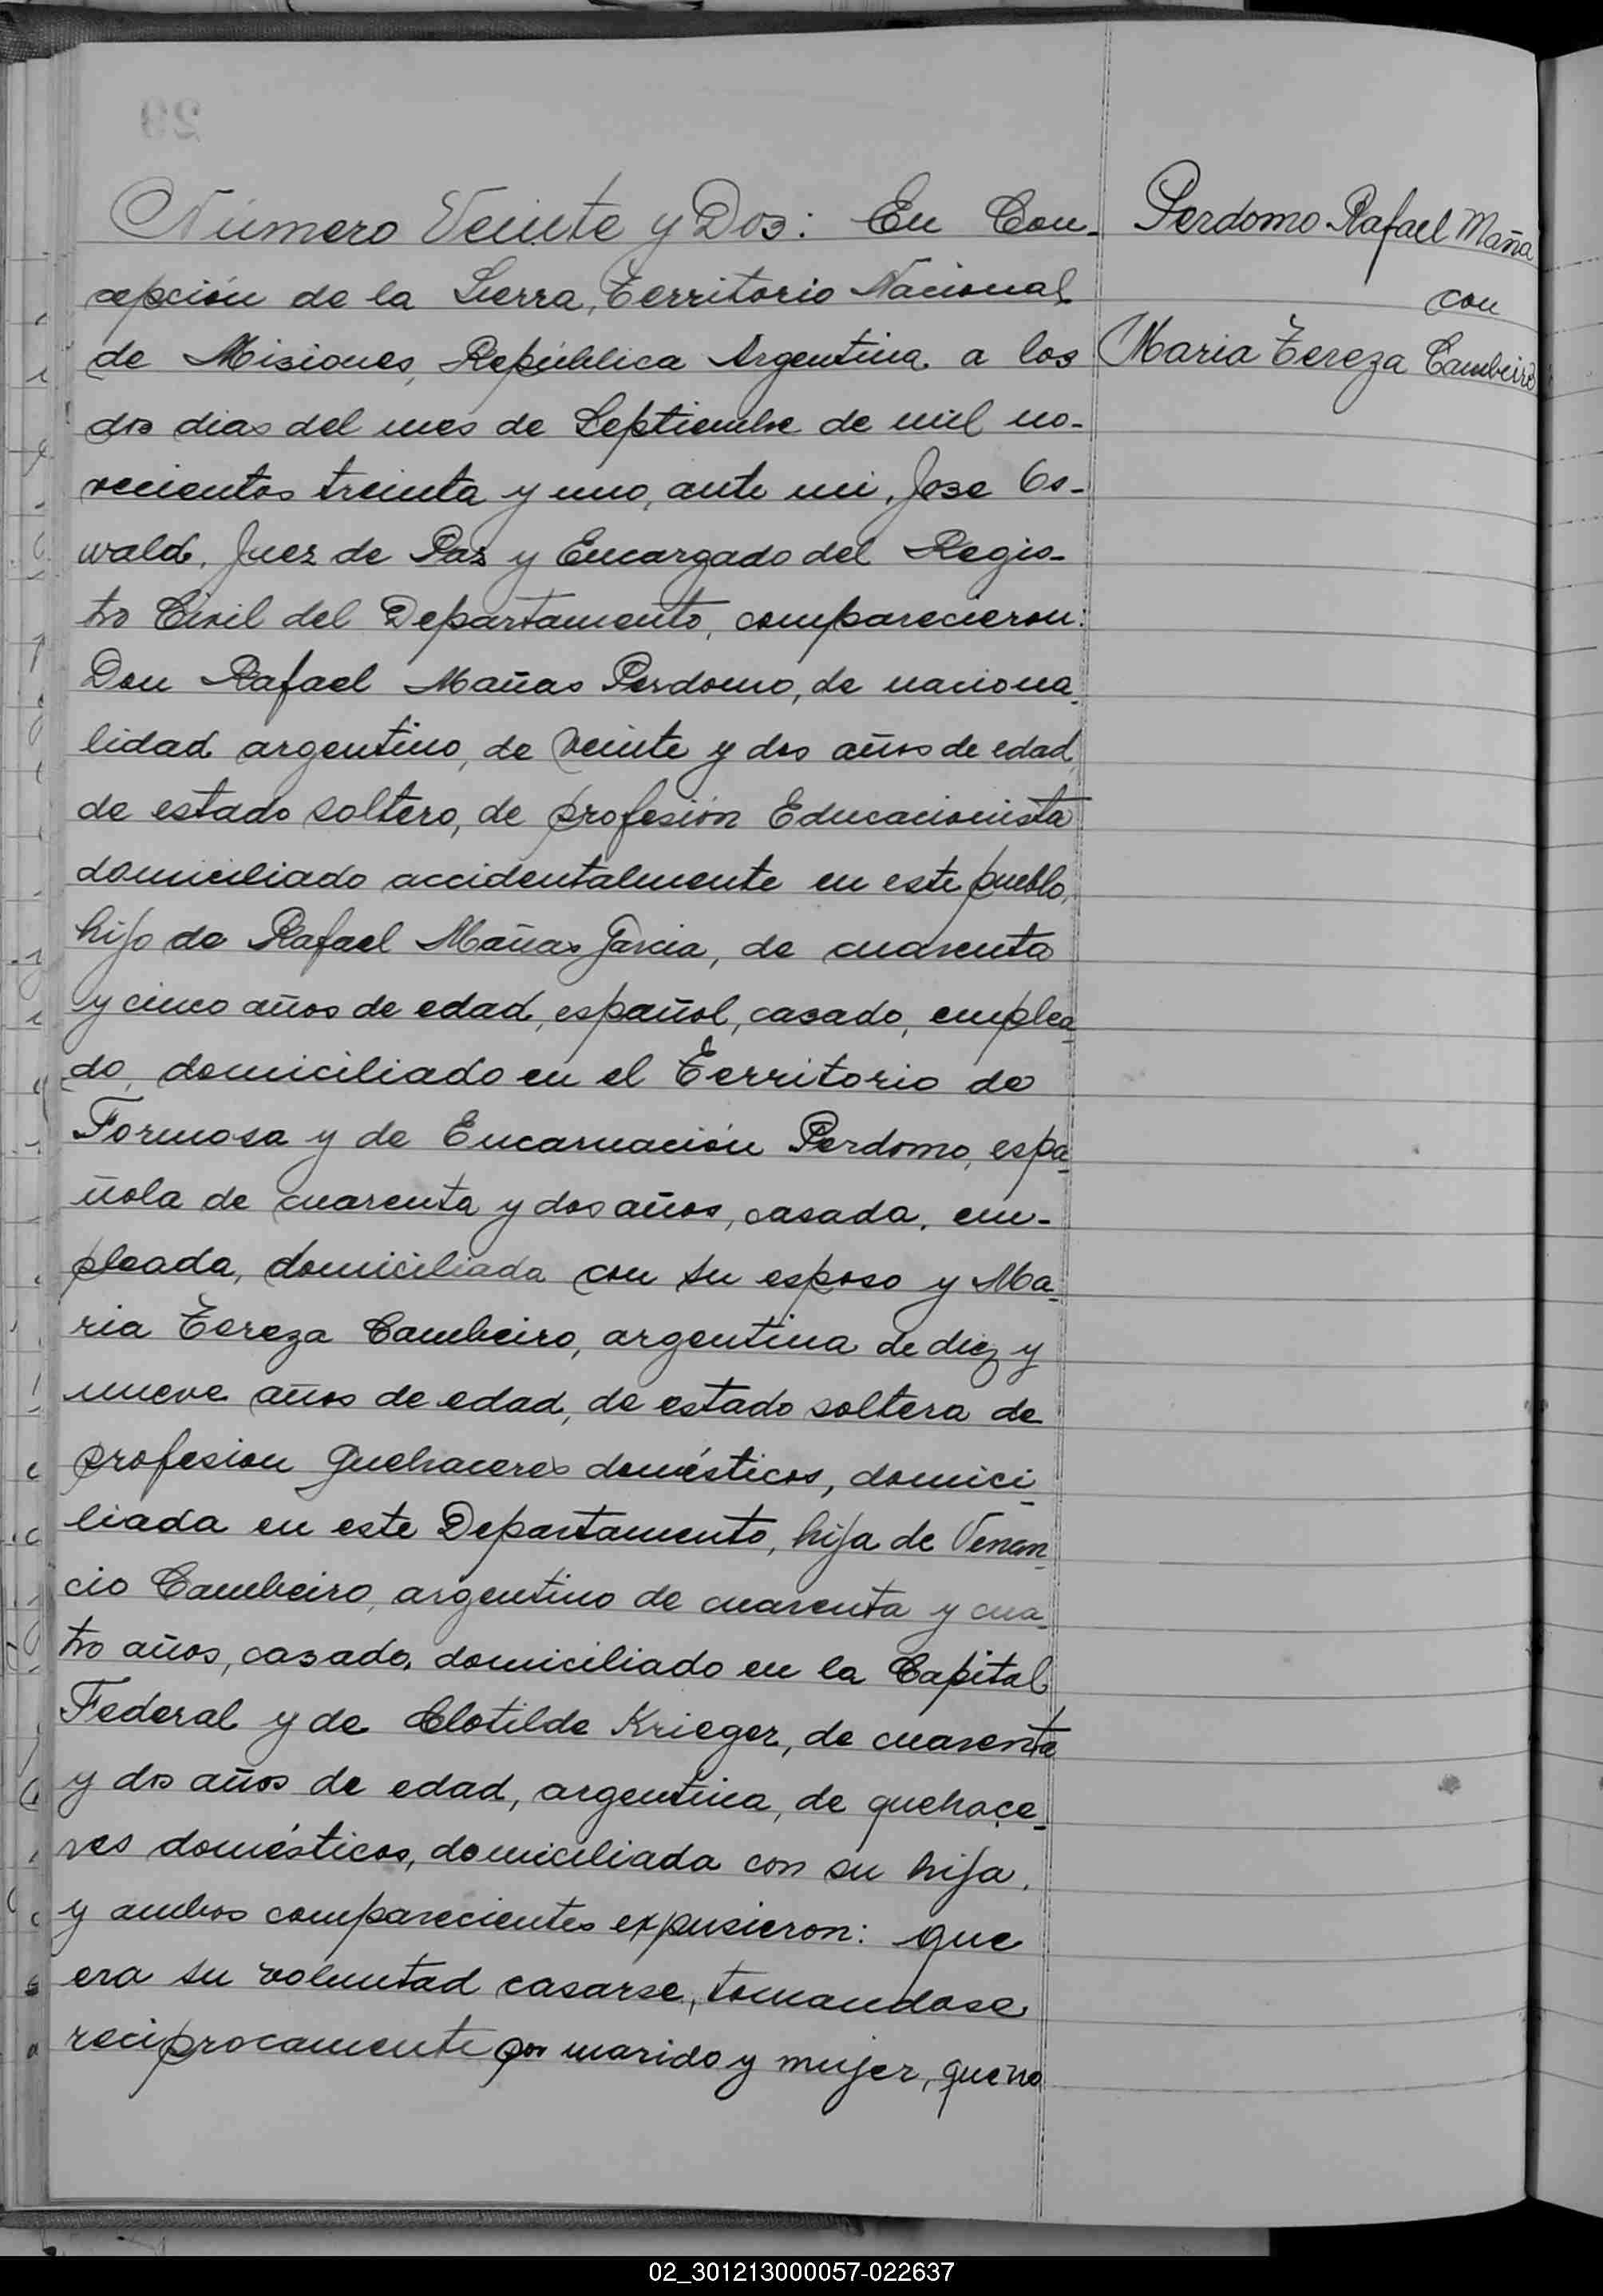 Número Veinte y Dos: En Con-
cepción de la Sierra, Territorio Nacional
de Misiones, República Argentina a los
dos dias del mes de Septiembre de mil no-
vecientos treinta y uno, ante mi, Jose Os-
wald, Juez de Paz y Encargado del Regis-
tro Civil del Departamento, comparecieron:
Don Rafael Mañas Perdomo, de naciona-
lidad argentino, de veinte y dos años de edad,
de estado soltero, de profesión Educacionista
domiciliado accidentalmente en este pueblo,
hijo de Rafael Mañas Garcia, de cuarenta
y cinco años de edad, español, casado, emplea-
do, domiciliado en el Territorio de
Formosa y de Encarnación Perdomo, espa-
ñola de cuarenta y dos años, casada, em-
pleada, domiciliada con su esposo y Ma-
ria Tereza Cambeiro, argentina de diez y
nueve años de edad, de estado soltera de
profesion quehaceres domésticos, domici-
liada en este Departamento, hija de Venan-
cio Cambeiro, argentino de cuarenta y cua-
tro años, casado, domiciliado en la Capital
Federal y de Clotilde Krieger, de cuarenta
y dos años de edad, argentina, de quehace-
res domésticos, domiciliada con su hija,
y ambos comparecientes expusieron: que
era su voluntad casarse, tomandose
reciprocamente por marido y mujer, que no
Perdomo Rafael Maña
con
Maria Tereza Cambeiro
29
02_301213000057-022637